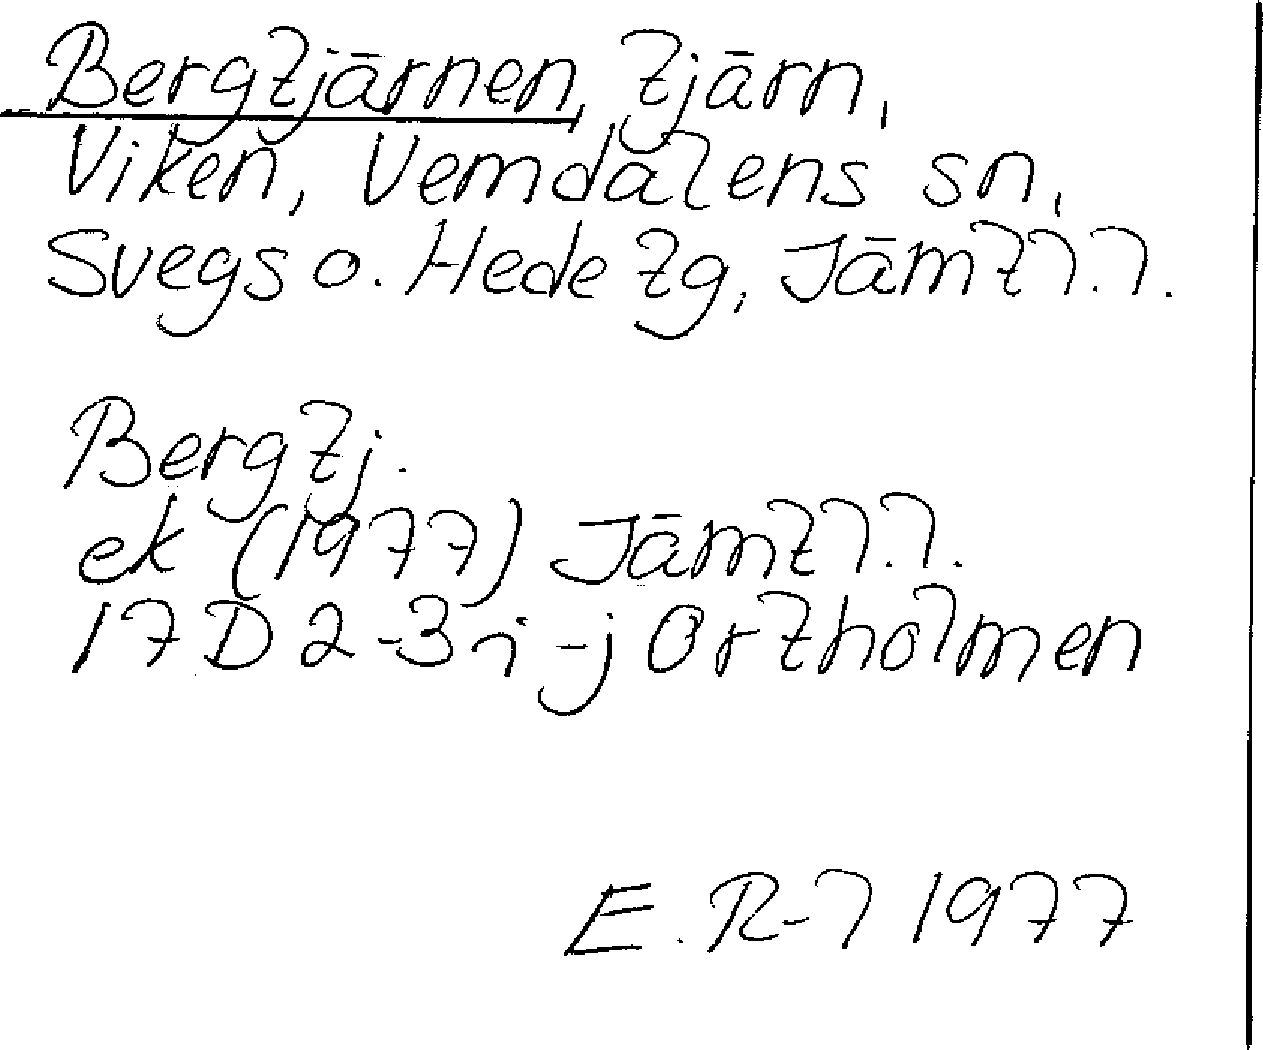 Bergtjärnen, tjärn,
Viken, Vemdalens sn,
Svegs o. Hede tg, Jämtl.l.
Bergtj.
ek (1977) Jämtl.l.
17D 2-3 i-j Ortholmen
E. R-l 1977